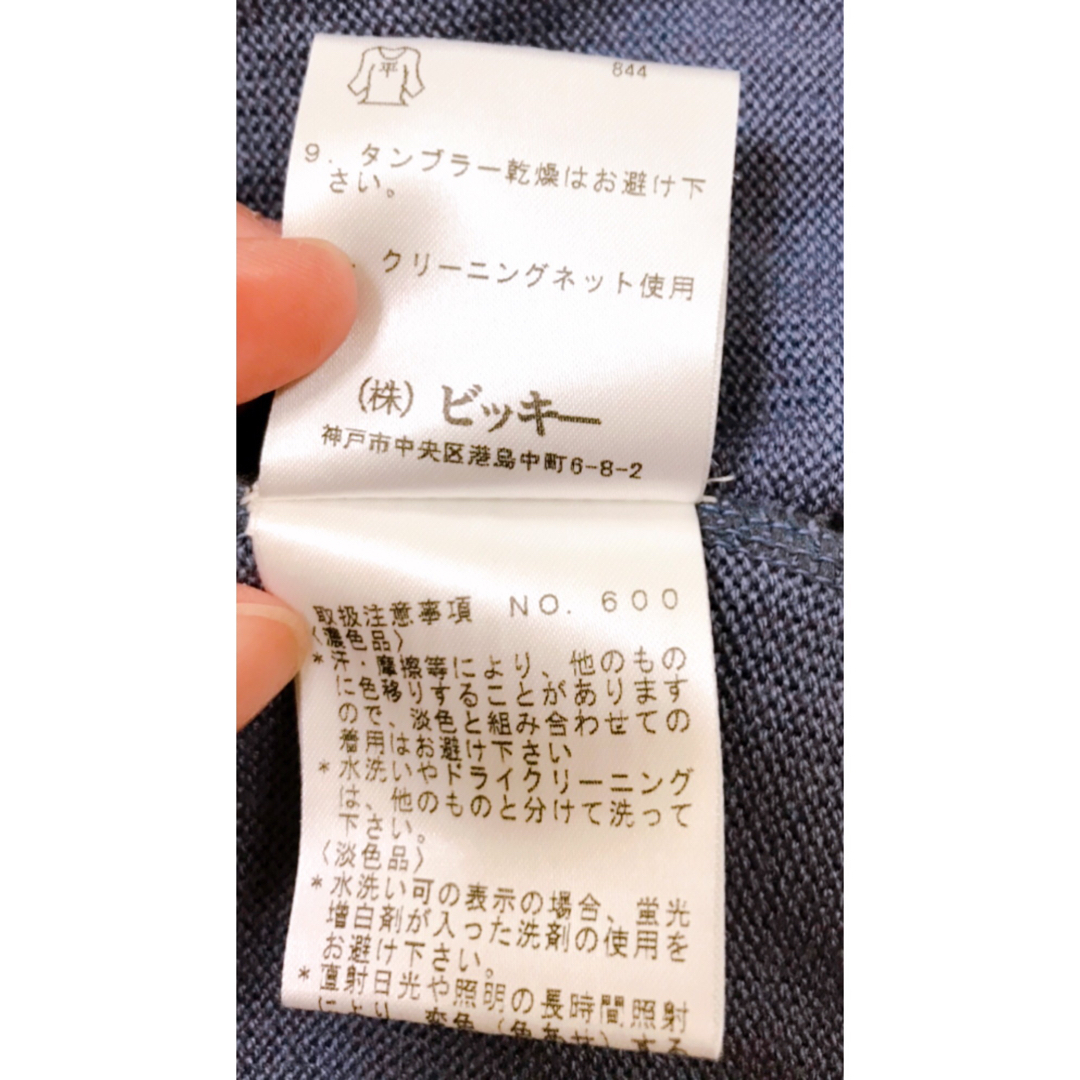 平
844
9. タンブラー乾燥はお避け下
さい。
クリーニングネット使用
(株) ビッキー
神戸市中央区港島中町6-8-2
取扱注意事項 NO. 600
〈濃色品〉
*汗・摩擦等により、他のもの
に色移りすることがあります
ので、淡色と組み合わせての
着用はお避け下さい
*水洗いやドライクリーニング
は、他のものと分けて洗って
下さい。
〈淡色品〉
*水洗い可の表示の場合、蛍光
増白剤が入った洗剤の使用を
お避け下さい。
*直射日光や照明の長時間照射
により、変色(色あせ)する